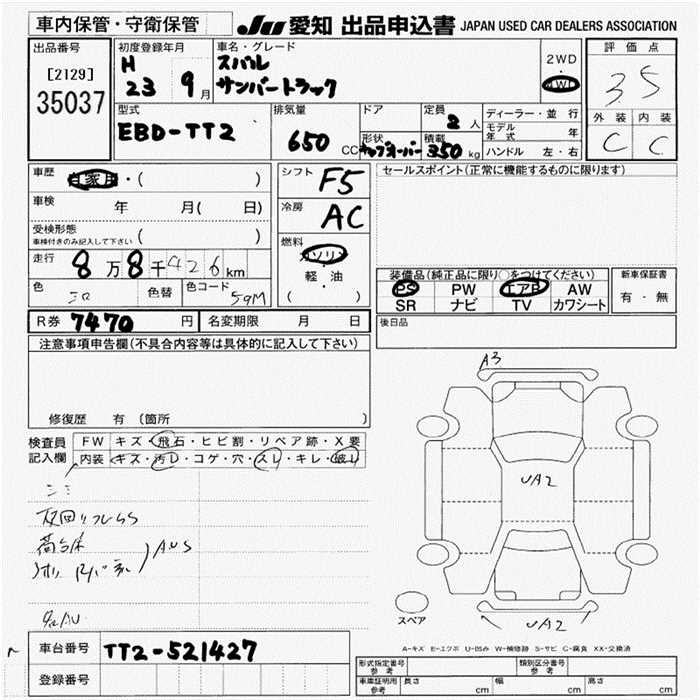 車内保管・守衛保管 JU 愛知 出品申込書 JAPAN USED CAR DEALERS ASSOCIATION
出品番号
[2129]
35037
初度登録年月
H
23 9月
車名・グレード
スバル
サンバートラック
2WD
・
4WD
評価点
3.5
外装 内装
C C
型式
EBD-TT2
排気量
650 CC
ドア
形状
定員
2人
積載
350 kg
ディーラー・並行
モデル年式 年
ハンドル 左・右
車歴 自家用・( )
車検 年 月( 日)
受検形態
車検付きのみ記入して下さい ( )
走行 8万8千426km
色 色替 色コード
シフト F5
冷房 AC
燃料 ガソリン
軽・油
( )
セールスポイント(正常に機能するものに限ります)
装備品(純正品に限り○をつけてください)
PS PW エアB AW
SR ナビ TV カワシート
新車保証書
有・無
R券 7470 円 名変期限 月 日
後日品
注意事項申告欄(不具合内容等は具体的に記入して下さい)
修復歴 有 (箇所 )
検査員
記入欄
FW キズ・飛石・ヒビ割・リペア跡・X要
内装 キズ・汚レ・コゲ・穴・スレ・キレ・破レ
A3
UA2
スペア
UA2
A-キズ E-エクボ U-凹み W-補修跡 S-サビ C-腐食 XX-交換済
車台番号 TT2-521427
登録番号
形式指定番号
参考
類別区分番号
参考
車庫証明用
参考
長さ cm 幅 cm 高さ cm